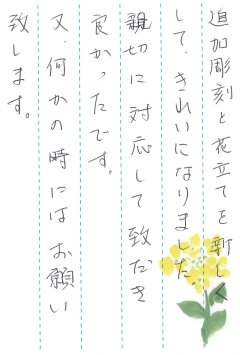 追加彫刻と花立てを新しく
して、きれいになりました。
親切に対応して致だき
良かったです。
又、何かの時にはお願い
致します。